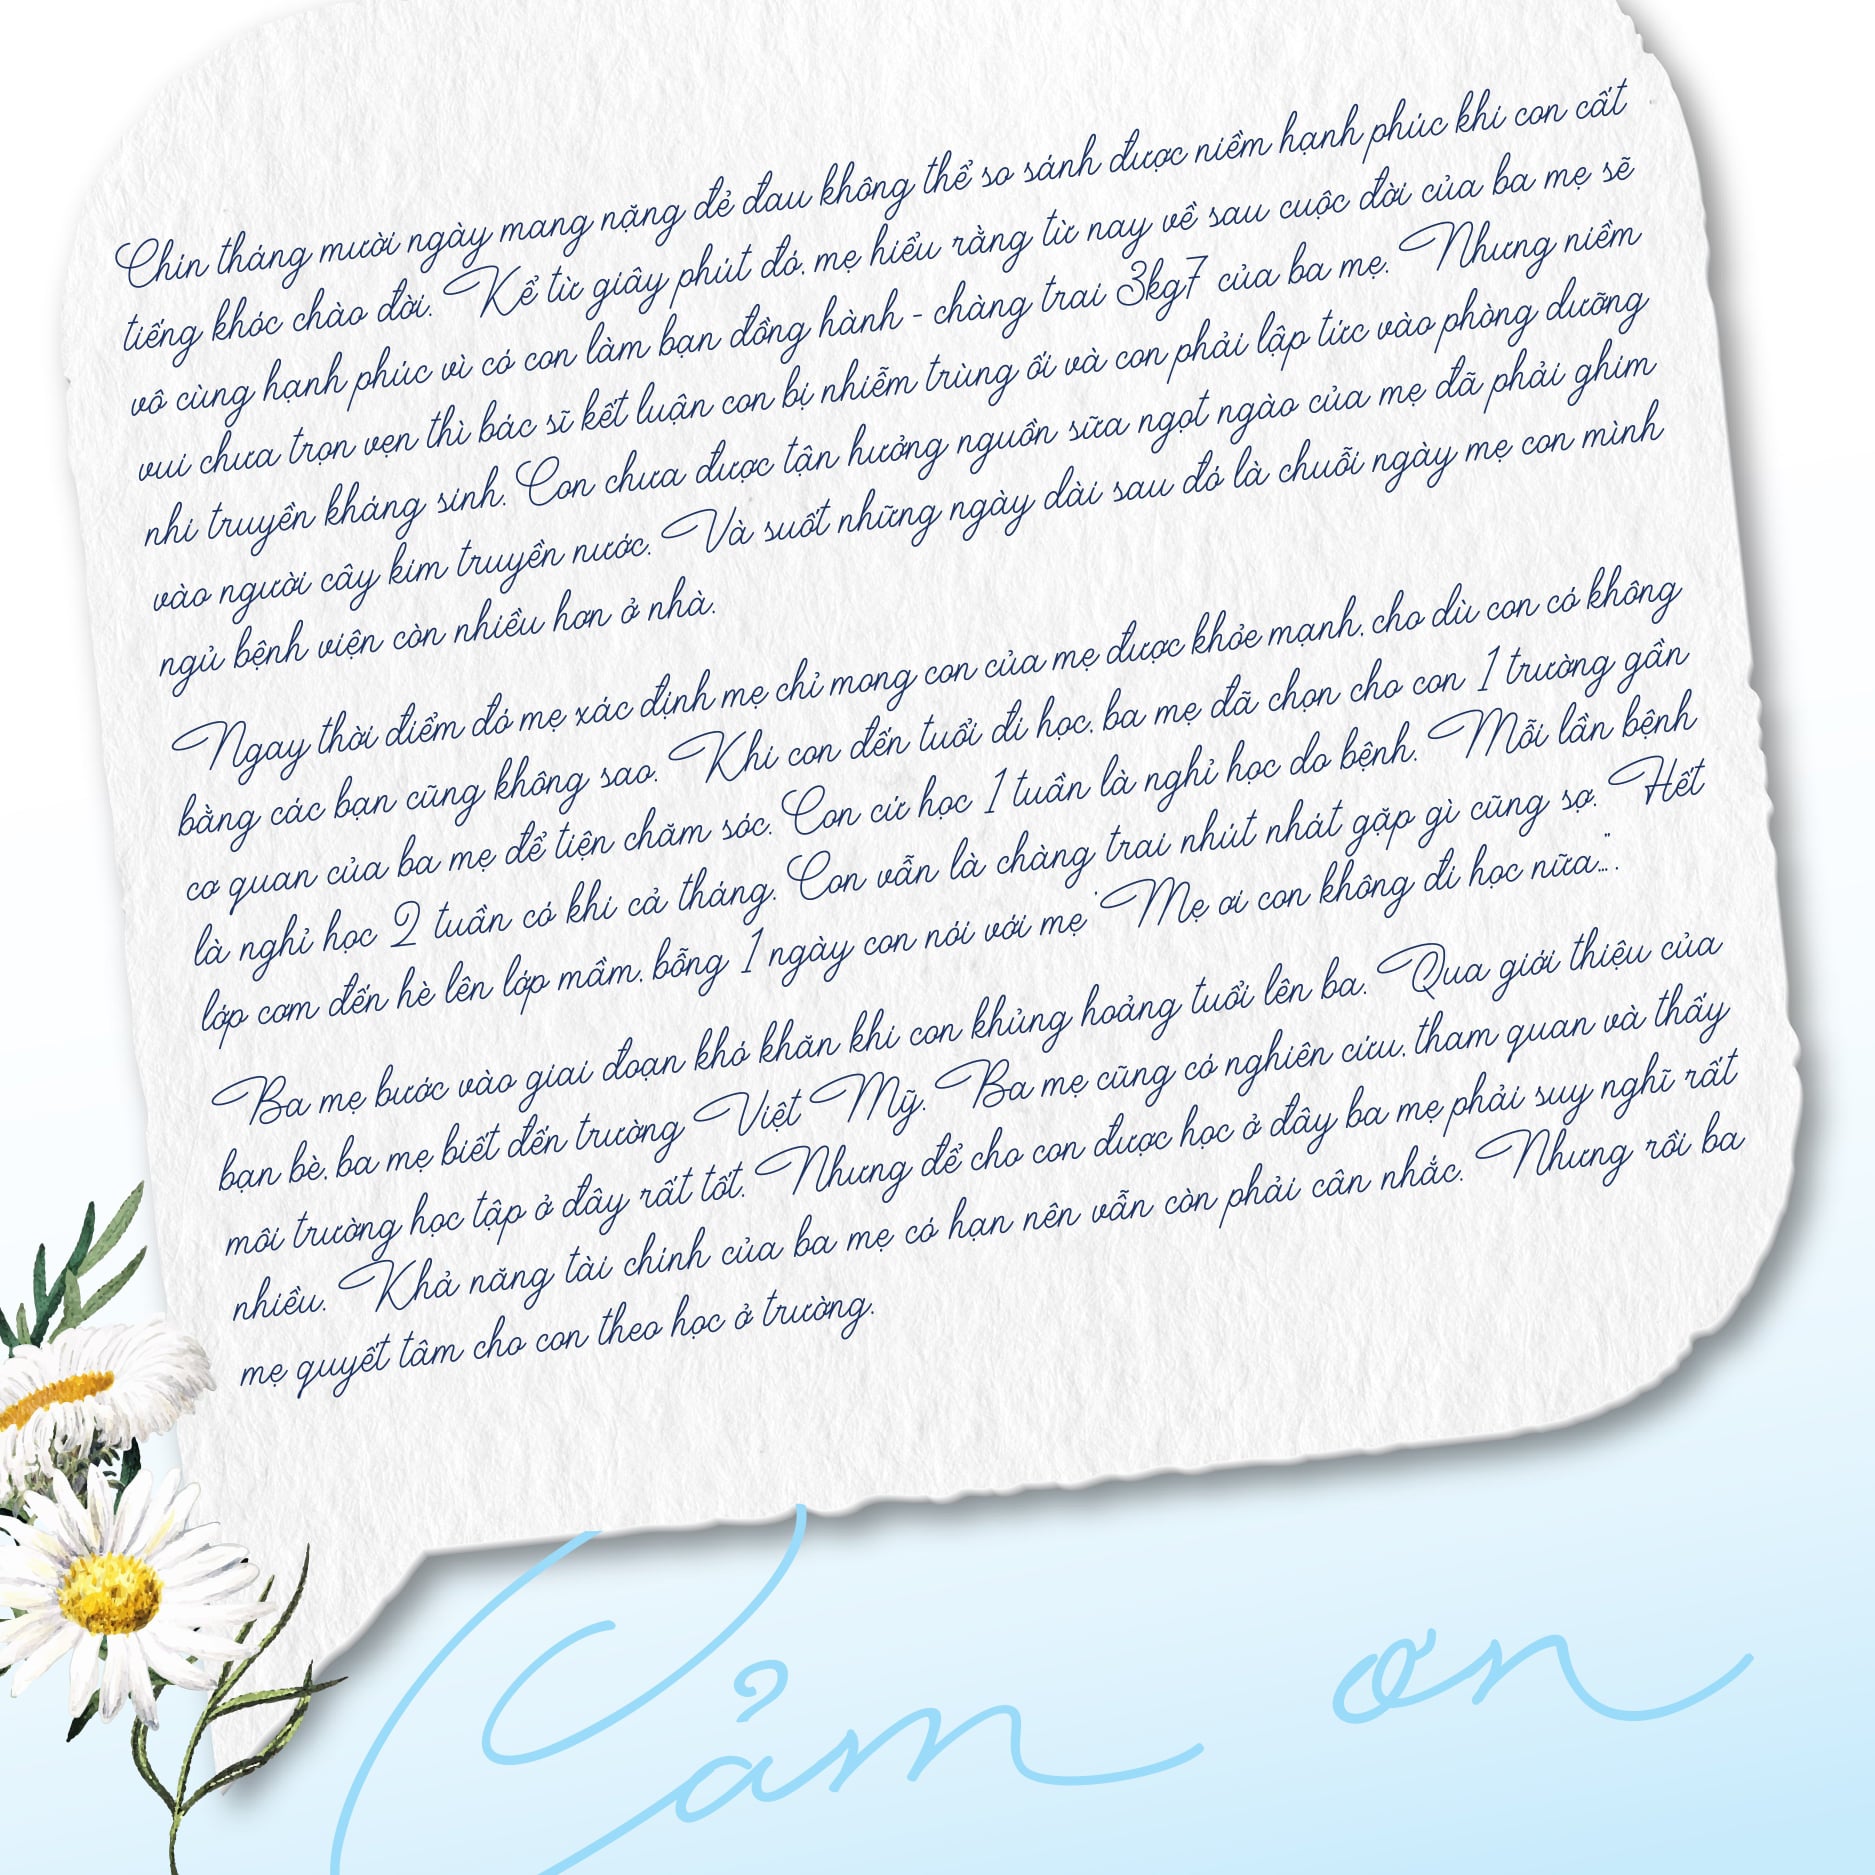 Chín tháng mười ngày mang nặng đẻ đau không thể so sánh được niềm hạnh phúc khi con cất
tiếng khóc chào đời. Kể từ giây phút đó, mẹ hiểu rằng từ nay về sau cuộc đời của ba mẹ sẽ
vô cùng hạnh phúc vì có con làm bạn đồng hành - chàng trai 3kg7 của ba mẹ. Nhưng niềm
vui chưa trọn vẹn thì bác sĩ kết luận con bị nhiễm trùng ối và con phải lập tức vào phòng dưỡng
nhi truyền kháng sinh. Con chưa được tận hưởng nguồn sữa ngọt ngào của mẹ đã phải ghim
vào người cây kim truyền nước. Và suốt những ngày dài sau đó là chuỗi ngày mẹ con mình
ngủ bệnh viện còn nhiều hơn ở nhà.
Ngay thời điểm đó mẹ xác định mẹ chỉ mong con của mẹ được khỏe mạnh, cho dù con có không
bằng các bạn cũng không sao. Khi con đến tuổi đi học, ba mẹ đã chọn cho con 1 trường gần
cơ quan của ba mẹ để tiện chăm sóc. Con cứ học 1 tuần là nghỉ học do bệnh. Mỗi lần bệnh
là nghỉ học 2 tuần có khi cả tháng. Con vẫn là chàng trai nhút nhát gặp gì cũng sợ. Hết
lớp cơm đến hè lên lớp mầm, bỗng 1 ngày con nói với mẹ "Mẹ ơi con không đi học nữa...".
Ba mẹ bước vào giai đoạn khó khăn khi con khủng hoảng tuổi lên ba. Qua giới thiệu của
bạn bè, ba mẹ biết đến trường Việt Mỹ. Ba mẹ cũng có nghiên cứu, tham quan và thấy
môi trường học tập ở đây rất tốt. Nhưng để cho con được học ở đây ba mẹ phải suy nghĩ rất
nhiều. Khả năng tài chính của ba mẹ có hạn nên vẫn còn phải cân nhắc. Nhưng rồi ba
mẹ quyết tâm cho con theo học ở trường.
Cảm ơn